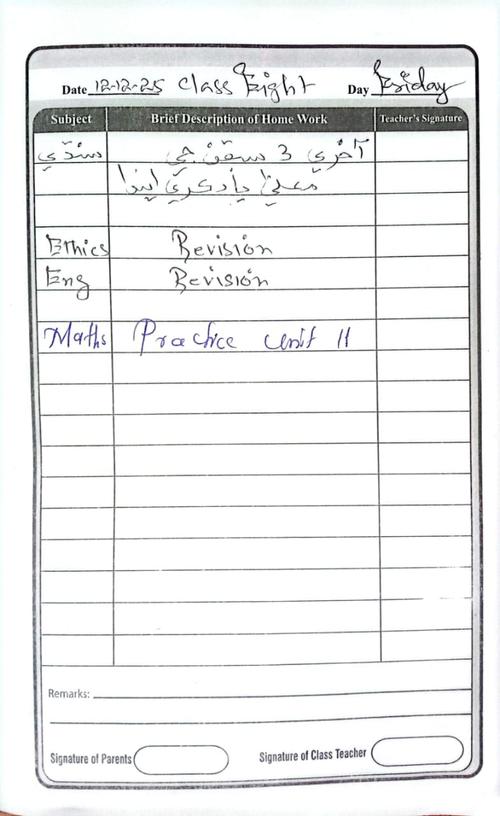 Date 12-12-25 Class Eight Day Friday
Subject Brief Description of Home Work Teacher's Signature
سنڌي آخري 3 سبقن جي
معنيٰ ياد ڪري ايندا
Ethics Revision
Eng Revision
Maths Practice unit 11
Remarks:
Signature of Parents Signature of Class Teacher